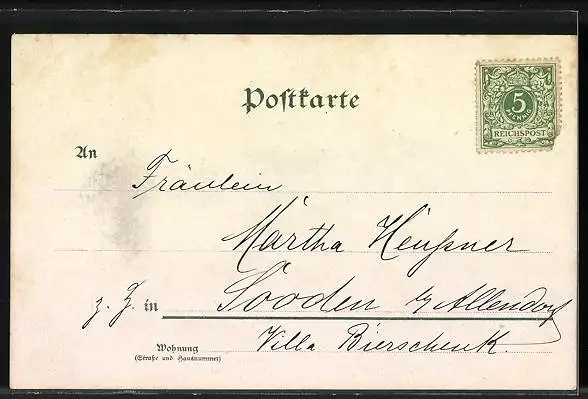 Postkarte
5
PFENNIG
REICHSPOST
An
Fräulein
Martha Heußner
z. Z. in Sooden b/ Allendorf
Villa Bierschenk.
Wohnung
(Straße und Hausnummer)